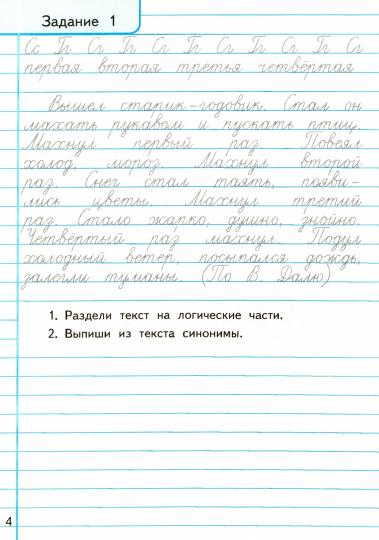 Задание 1
Сс Гг Сг Гг Сг Гг Сг Гг Сг Гг Сг
первая вторая третья четвёртая
Вышел старик-годовик. Стал он
махать рукавом и пускать птиц.
Махнул первый раз. Повеял
холод, мороз. Махнул второй
раз. Снег стал таять, появи-
лись цветы. Махнул третий
раз. Стало жарко, душно, знойно.
Четвёртый раз махнул. Подул
холодный ветер, посыпался дождь,
залегли туманы. (По В. Далю)
1. Раздели текст на логические части.
2. Выпиши из текста синонимы.
4